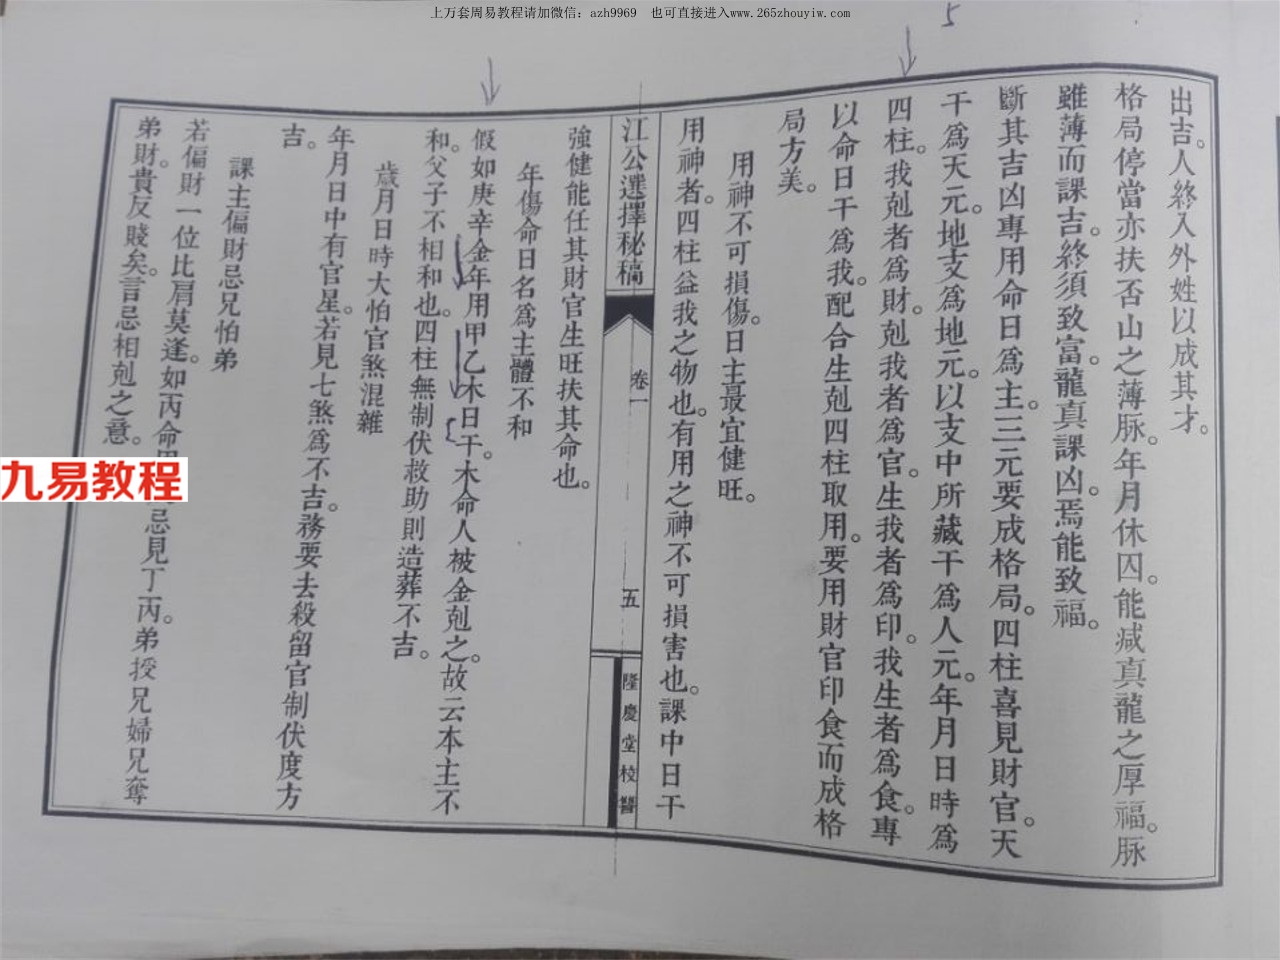 上万套周易教程请加微信：azh9969　也可直接进入www.265zhouyiw.com
5
出吉。人終入外姓以成其才。
格局停當亦扶否山之薄脉。年月休囚。能减真龍之厚福。脉
雖薄而課吉。終須致富。龍真課凶。焉能致福。
斷其吉凶專用命日爲主。三元要成格局。四柱喜見財官。天
干爲天元。地支爲地元。以支中所藏干爲人元。年月日時爲
四柱。我剋者爲財。剋我者爲官。生我者爲印。我生者爲食。專
以命日干爲我。配合生剋四柱取用。要用財官印食而成格
局方美。
用神不可損傷。日主最宜健旺。
用神者。四柱益我之物也。有用之神不可損害也。課中日干
江公選擇秘稿
卷一
五
隆慶堂校讐
強健能任其財官生旺扶其命也。
年傷命日名爲主體不和
假如庚辛金年用甲乙木日干。木命人被金剋之。故云本主不
和。父子不相和也。四柱無制伏救助則造葬不吉。
歲月日時大怕官煞混雜
年月日中有官星。若見七煞爲不吉。務要去殺留官制伏度方
吉。
課主偏財忌兄怕弟
若偏財一位比肩莫逢。如丙命忌見丁丙。弟授兄婦兄奪
弟財。貴反賤矣。言忌相剋之意。
九易教程